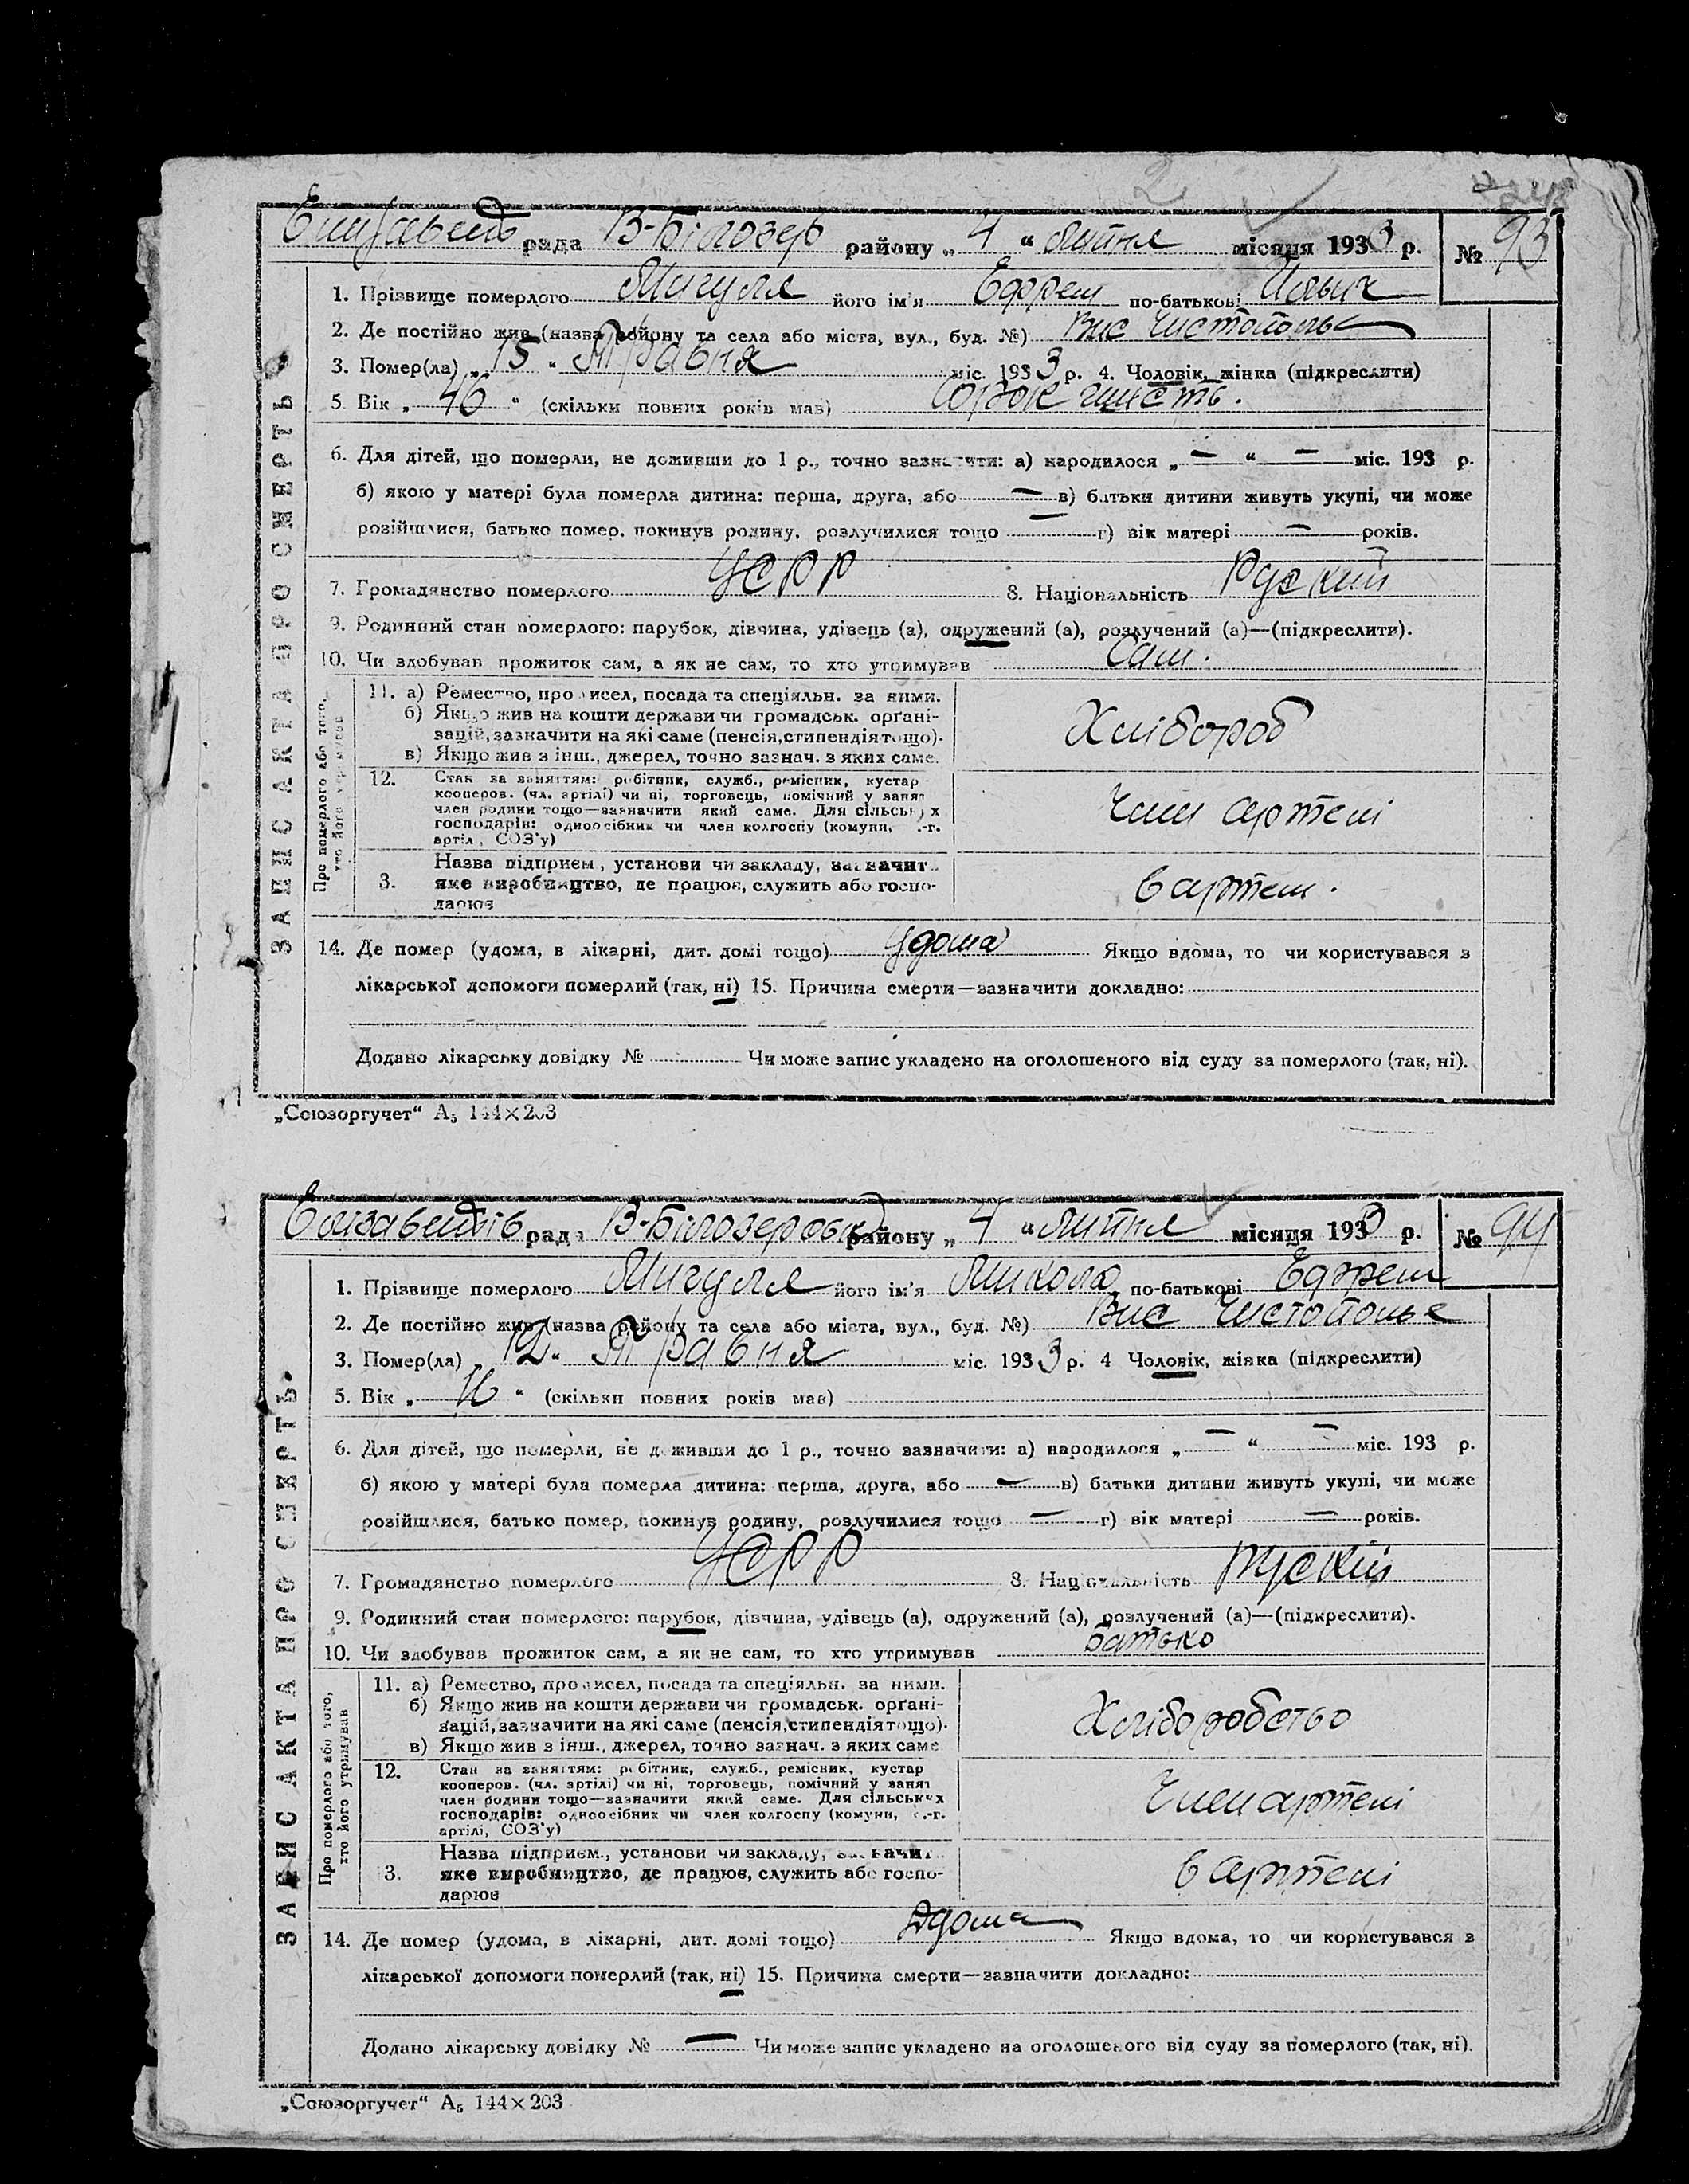 2
Єлизавет рада В-Білозер району „4“ липня місяця 1933 р. № 93
ЗАПИС АКТА ПРО СМЕРТЬ
1. Прізвище померлого Мигуля його ім'я Ефрем по-батькові Ильич
2. Де постійно жив (назва району та села або міста, вул., буд. №) Вис Чистополье
3. Помер(ла) „15“ Травня міс. 1933 р. 4. Чоловік, жінка (підкреслити)
5. Вік „46“ (скільки повних років мав) сорок шисть.
6. Для дітей, що померли, не доживши до 1 р., точно зазначити: а) народилося „—“ — міс. 193 р.
б) якою у матері була померла дитина: перша, друга, або — в) батьки дитини живуть укупі, чи може
розійшлися, батько помер, покинув родину, розлучилися тощо — г) вік матері — років.
7. Громадянство померлого УСРР 8. Національність Руский
9. Родинний стан померлого: парубок, дівчина, удівець (а), одружений (а), розлучений (а)—(підкреслити).
10. Чи здобував прожиток сам, а як не сам, то хто утримував Сам.
Про померлого або того, хто його утримував
11. а) Ремество, промисел, посада та спеціяльн. за ними.
б) Якщо жив на кошти держави чи громадськ. орґані-
зацій, зазначити на які саме (пенсія, стипендія тощо).
в) Якщо жив з інш., джерел, точно зазнач. з яких саме.
Хлібороб
12. Стан за заняттям: робітник, служб., ремісник, кустар
кооперов. (чл. артілі) чи ні, торговець, помічний у занят
член родини тощо—зазначити який саме. Для сільських
господарів: одноосібник чи член колгоспу (комуни, с.-г.
артілі, СОЗ'у)
Член артелі
3. Назва підприєм., установи чи закладу, зазначит
яке виробництво, де працює, служить або госпо-
дарює
в артелі.
14. Де помер (удома, в лікарні, дит. домі тощо) Удома Якщо вдома, то чи користувався з
лікарської допомоги померлий (так, ні) 15. Причина смерти—зазначити докладно:
Додано лікарську довідку № Чи може запис укладено на оголошеного від суду за померлого (так, ні).
„Союзоргучет“ А5 144×203
Єлізаветів рада В-Білозерськ району „4“ липня місяця 1933 р. № 94
ЗАПИС АКТА ПРО СМЕРТЬ
1. Прізвище померлого Мигуля його ім'я Микола по-батькові Ефрем
2. Де постійно жив (назва району та села або міста, вул., буд. №) Вис Чистополье
3. Помер(ла) „12“ Травня міс. 1933 р. 4 Чоловік, жінка (підкреслити)
5. Вік „16“ (скільки повних років мав)
6. Для дітей, що померли, не доживши до 1 р., точно зазначити: а) народилося „—“ — міс. 193 р.
б) якою у матері була померла дитина: перша, друга, або — в) батьки дитини живуть укупі, чи може
розійшлися, батько помер, покинув родину, розлучилися тощо — г) вік матері — років.
7. Громадянство померлого УСРР 8. Національність Руский
9. Родинний стан померлого: парубок, дівчина, удівець (а), одружений (а), розлучений (а)—(підкреслити).
10. Чи здобував прожиток сам, а як не сам, то хто утримував батько
Про померлого або того, хто його утримував
11. а) Ремество, промисел, посада та спеціяльн. за ними.
б) Якщо жив на кошти держави чи громадськ. орґані-
зацій, зазначити на які саме (пенсія, стипендія тощо).
в) Якщо жив з інш., джерел, точно зазнач. з яких саме
Хліборобство
12. Стан за заняттям: робітник, служб., ремісник, кустар
кооперов. (чл. артілі) чи ні, торговець, помічний у занят
член родини тощо—зазначити який саме. Для сільських
господарів: одноосібник чи член колгоспу (комуни, с.-г.
артілі, СОЗ'у)
Член артелі
3. Назва підприєм., установи чи закладу, зазначит
яке виробництво, де працює, служить або госпо-
дарює
в артелі
14. Де помер (удома, в лікарні, дит. домі тощо) Удома Якщо вдома, то чи користувався з
лікарської допомоги померлий (так, ні) 15. Причина смерти—зазначити докладно:
Додано лікарську довідку № — Чи може запис укладено на оголошеного від суду за померлого (так, ні).
„Союзоргучет“ А5 144×203